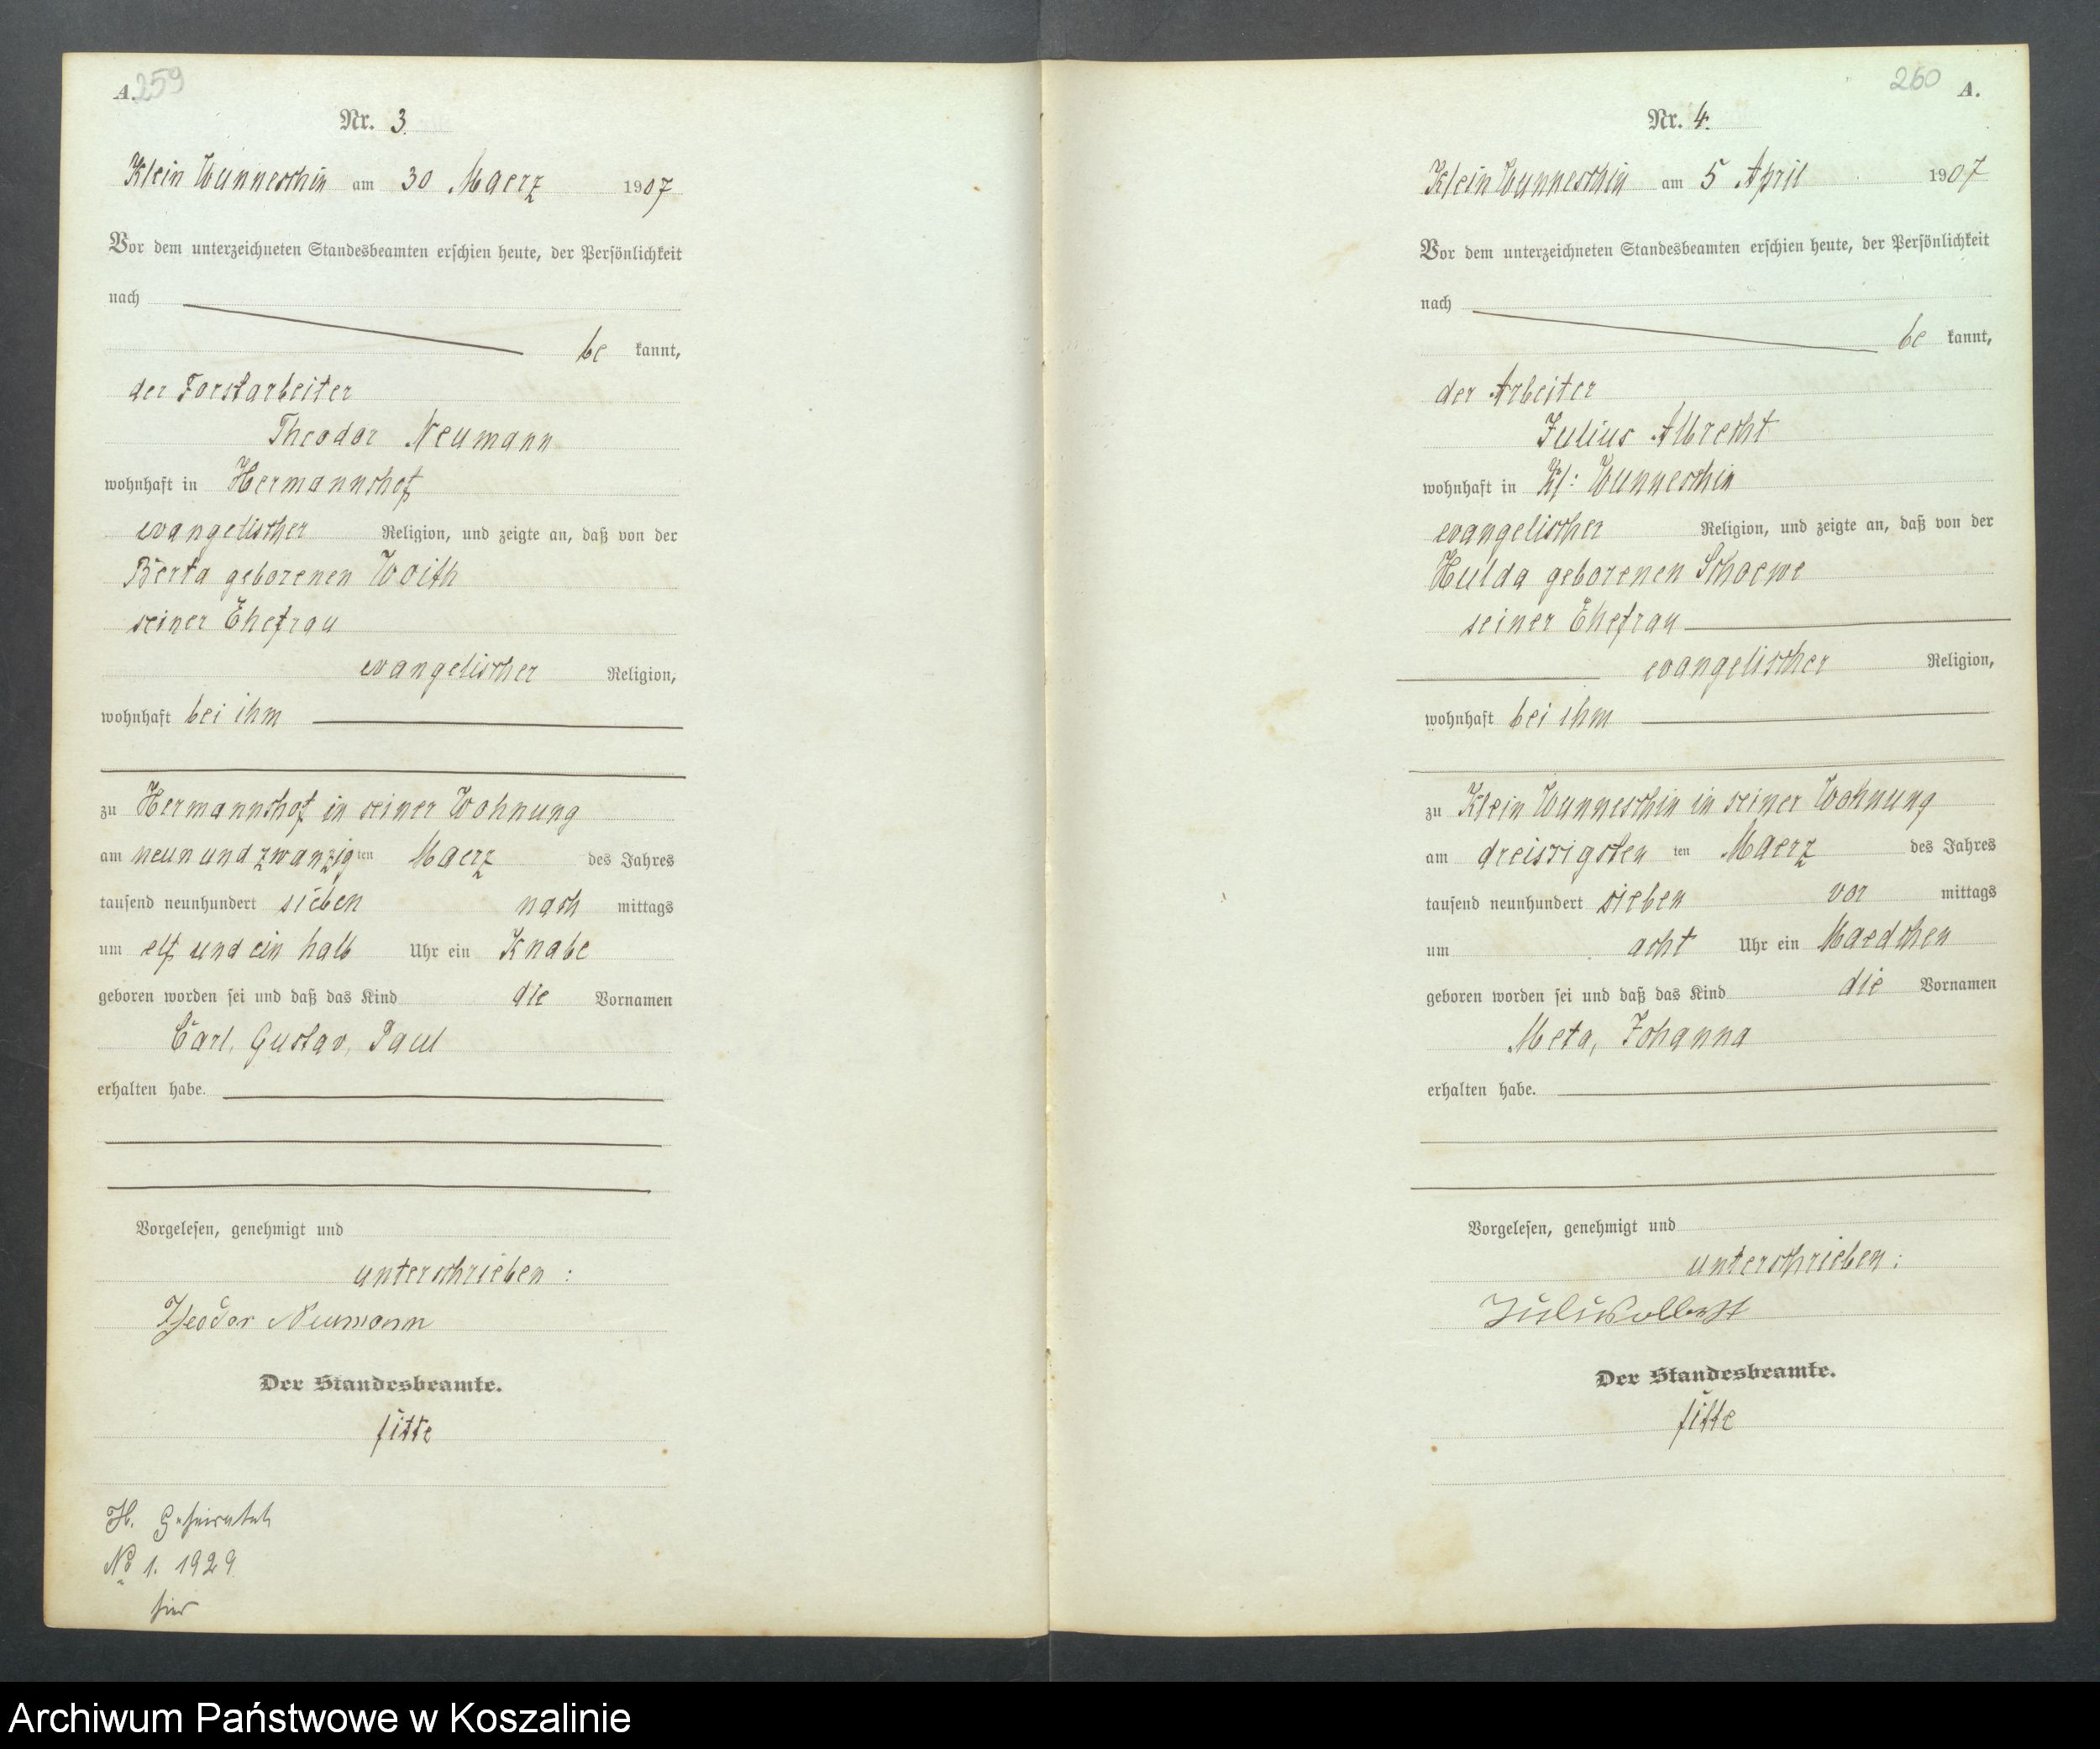 A. 259
Nr. 3.
Klein Wunneschin am 30 Maerz 1907
Vor dem unterzeichneten Standesbeamten erschien heute, der Persönlichkeit
nach
be kannt,
der Forstarbeiter
Theodor Neumann
wohnhaft in Hermannshof
evangelischer Religion, und zeigte an, daß von der
Berta geborenen Woith
seiner Ehefrau
evangelischer Religion,
wohnhaft bei ihm
zu Hermannshof in seiner Wohnung
am neun und zwanzig ten Maerz des Jahres
tausend neunhundert sieben nach mittags
um elf und ein halb Uhr ein Knabe
geboren worden sei und daß das Kind die Vornamen
Carl, Gustav, Paul
erhalten habe.
Vorgelesen, genehmigt und
unterschrieben :
Theodor Neumann
Der Standesbeamte.
H. Geheiratet
No 1. 1929
hier
260 A.
Nr. 4.
Klein Wunneschin am 5 April 1907
Vor dem unterzeichneten Standesbeamten erschien heute, der Persönlichkeit
nach
be kannt,
der Arbeiter
Julius Albrecht
wohnhaft in Kl: Wunneschin
evangelischer Religion, und zeigte an, daß von der
Hulda geborenen Schoewe
seiner Ehefrau
evangelischer Religion,
wohnhaft bei ihm
zu Klein Wunneschin in seiner Wohnung
am dreissigsten ten Maerz des Jahres
tausend neunhundert sieben vor mittags
um acht Uhr ein Maedchen
geboren worden sei und daß das Kind die Vornamen
Meta, Johanna
erhalten habe.
Vorgelesen, genehmigt und
unterschrieben :
Julius Albrecht
Der Standesbeamte.
Archiwum Państwowe w Koszalinie